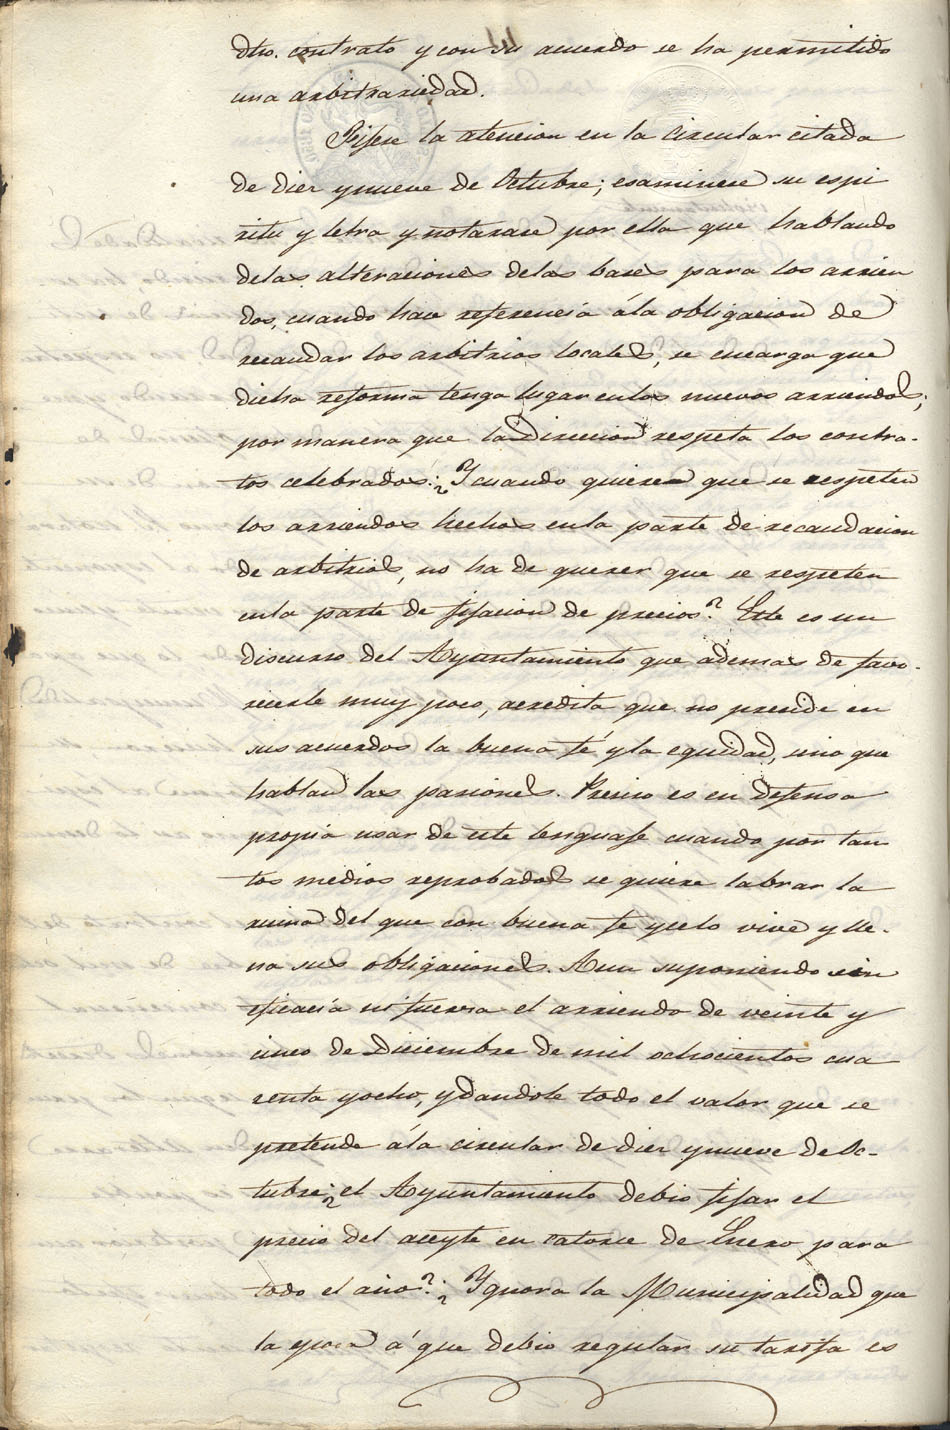 dho. contrato y con su acuerdo se ha permitido
una arbitrariedad.
Fijese la atencion en la circular citada
de diez y nueve de Octubre; esaminese su espi
ritu y letra y notarase por ella que hablando
delas alteraciones delas bases para los arrien
dos, cuando hace referencia ála obligacion de
recaudar los arbitrios locales, se encarga que
dicha reforma tenga lugar enlos nuevos arriendos;
por manera que la Direccion respeta los contra-
tos celebrados: ¿Y cuando quiere que se respeten
los arriendos hechos enla parte de recaudacion
de arbitrios, no ha de querer que se respeten
enla parte de fijacion de precios? Este es un
discurso del Ayuntamiento que ademas de favo-
recerle muy poco, acredita que no preside en
sus acuerdos la buena fé y la equidad, sino que
hablan las pasiones. Preciso es en defensa
propia usar de este lenguaje cuando por tan
tos medios reprobados se quiere labrar la
ruina del que con buena fe y celo vive y lle-
na sus obligaciones. Aun suponiendo sin
eficacia ni fuerza el arriendo de veinte y
cinco de Diciembre de mil ochocientos cua
renta y ocho, y dandole todo el valor que se
pretende ála circular de diez y nueve de Oc-
tubre; ¿el Ayuntamiento debio fijar el
precio del aceyte en catorce de Enero para
todo el año?: ¿Ygnora la Municipalidad que
la epoca á que debio regular su tarifa es